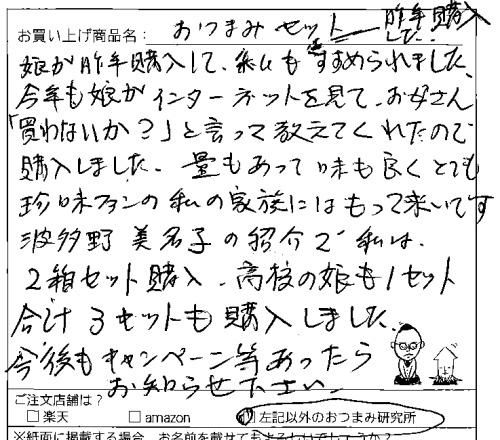 お買い上げ商品名： おつまみセット 昨年購入した。
娘が昨年購入して、私もすすめられました。
今年も娘がインターネットを見て、お母さん
「買わないか？」と言って教えてくれたので
購入しました。量もあって味も良くとても
珍味ファンの私の家族にはもって来いです
波多野 美名子の紹介で私は、
2箱セット購入、高校の娘も1セット
合計3セットも購入しました。
今後もキャンペーン等あったら
お知らせ下さい
ご注文店舗は？
□楽天 □amazon □左記以外のおつまみ研究所
※紙面に掲載する場合、お名前を載せてもよろしいでしょうか？